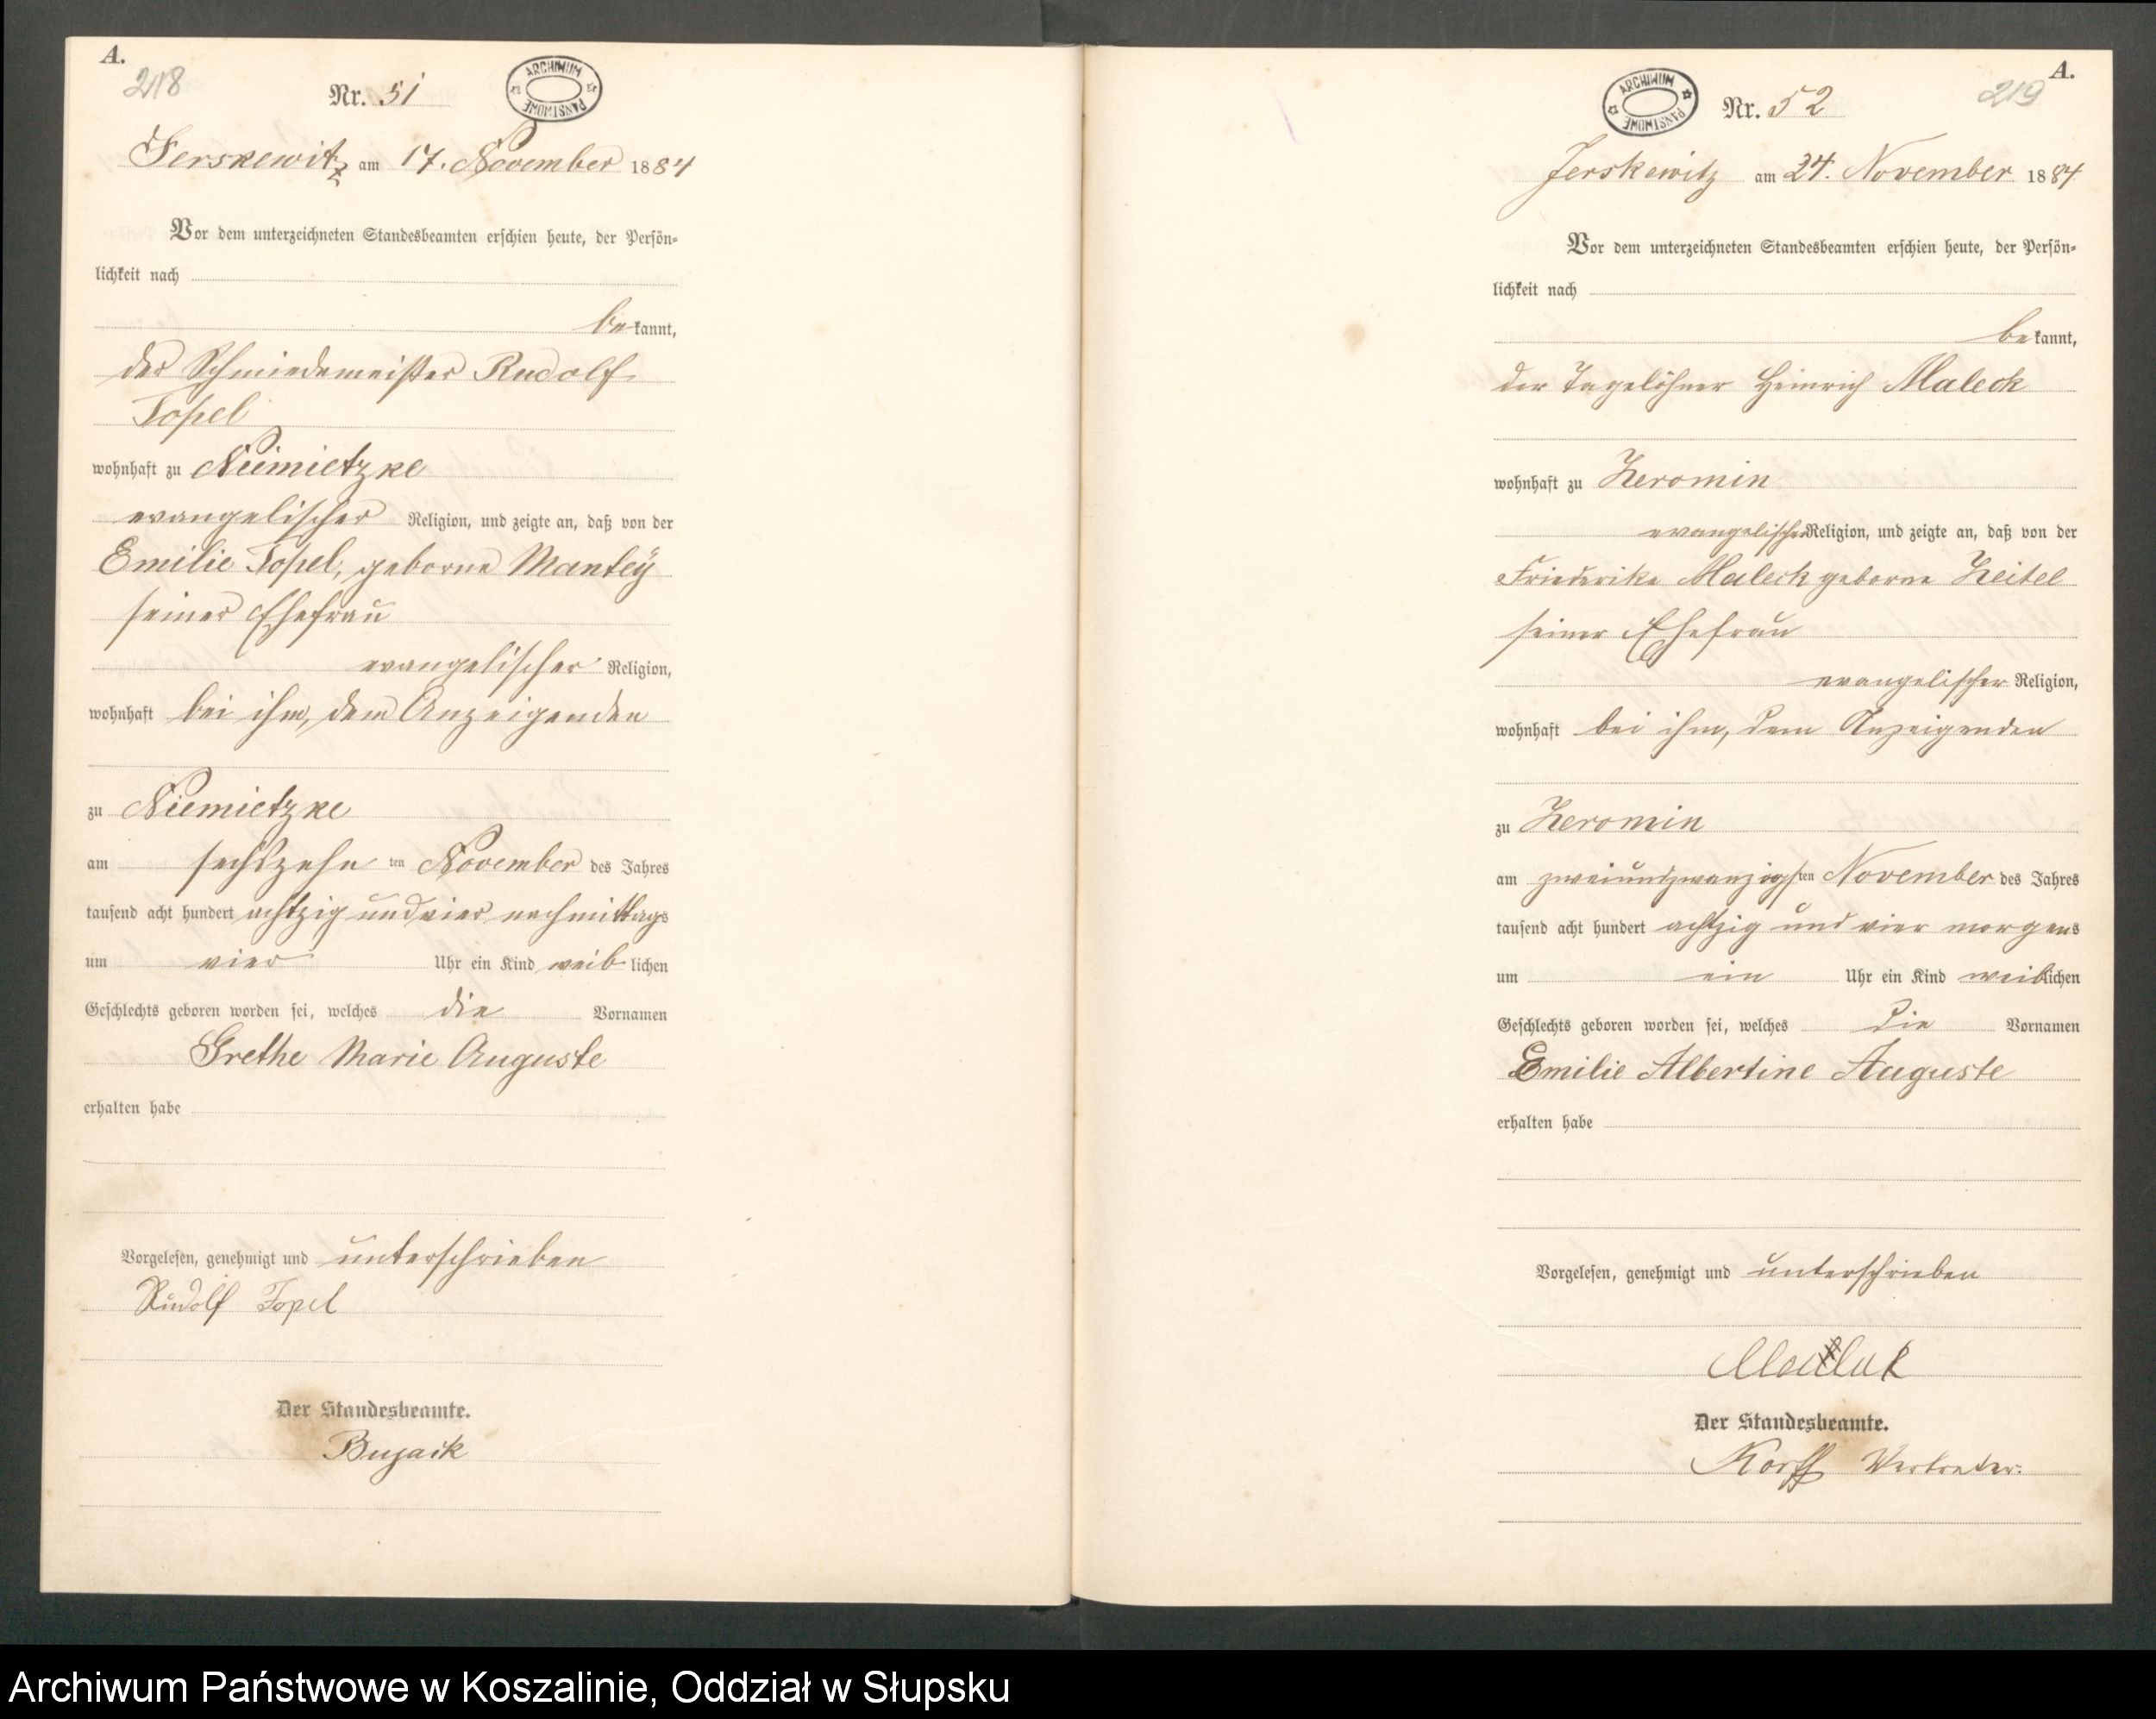 A.
218
Nr. 51
ARCHIWUM PAŃSTWOWE
Jerskewitz am 17. November 1884
Vor dem unterzeichneten Standesbeamten erschien heute, der Persön-
lichkeit nach
bekannt,
der Schmiedemeister Rudolf
Topel
wohnhaft zu Niemietzke
evangelischer Religion, und zeigte an, daß von der
Emilie Topel, geborne Mantey
seiner Ehefrau
evangelischer Religion,
wohnhaft bei ihm, dem Anzeigenden
zu Niemietzke
am sechszehn ten November des Jahres
tausend acht hundert achtzig und vier nachmittags
um vier Uhr ein Kind weiblichen
Geschlechts geboren worden sei, welches die Vornamen
Grethe Marie Auguste
erhalten habe
Vorgelesen, genehmigt und unterschrieben
Rudolf Topel
Der Standesbeamte.
A.
219
Nr. 52
ARCHIWUM PAŃSTWOWE
Jerskewitz am 24. November 1884
Vor dem unterzeichneten Standesbeamten erschien heute, der Persön-
lichkeit nach
bekannt,
der Tagelöhner Heinrich Maleck
wohnhaft zu Zeromin
evangelischer Religion, und zeigte an, daß von der
Friederike Maleck geborne Zeitel
seiner Ehefrau
evangelischer Religion,
wohnhaft bei ihm, dem Anzeigenden
zu Zeromin
am zweiundzwanzigsten November des Jahres
tausend acht hundert achtzig und vier morgens
um ein Uhr ein Kind weiblichen
Geschlechts geboren worden sei, welches die Vornamen
Emilie Albertine Auguste
erhalten habe
Vorgelesen, genehmigt und unterschrieben
Der Standesbeamte.
Korff Vertreter.
Archiwum Państwowe w Koszalinie, Oddział w Słupsku